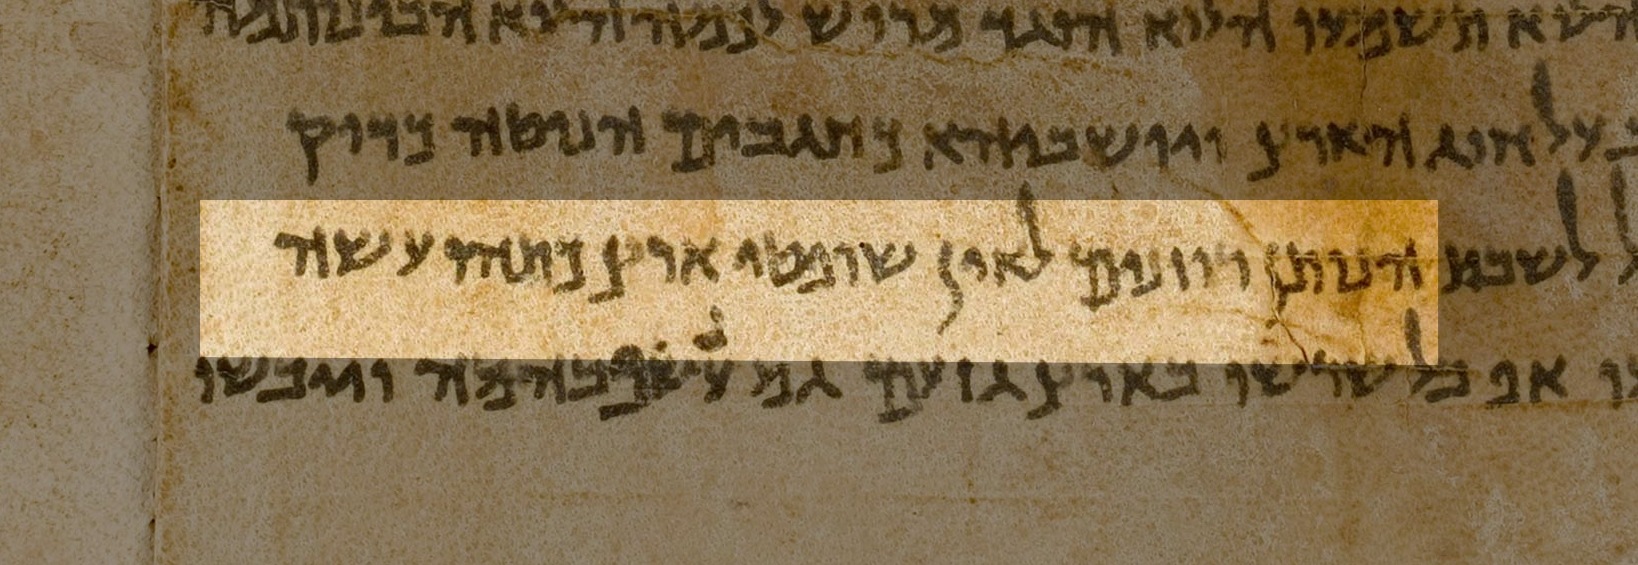 הלוא תשמעו הלוא הוגד מרוש לכמה הלוא הבינותמה
על חוג הארץ ויושביהא כחגבים הנוטה כדוק
לשבת הנותן רוזנים לאין שופטי ארץ כתהו עשה
אף בל שרשו בארץ גזעם גם נשף בהמה ויבשו